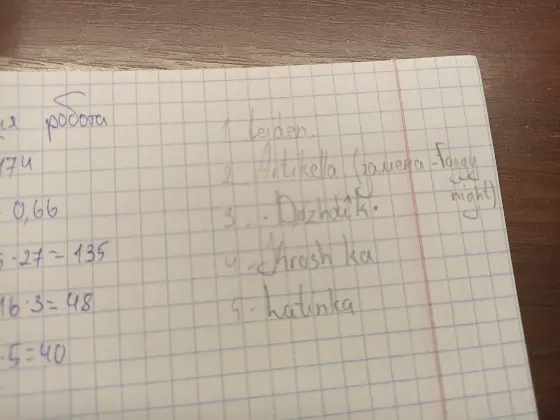 ія робота
174
0,66
5·27=135
16·3=48
·5=40
1 Leiden.
2 Artikella (замена - Fangy night)
3 - Ddzhdik.
4 - Hrosh ka
5 - hatinka